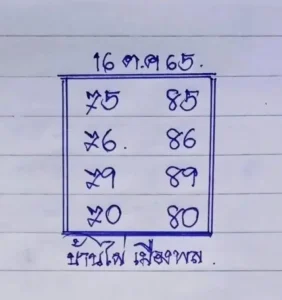 16 ต.ค 65.
75 85
76. 86
79 89
70 80
บ้านไผ่ เมืองพล.